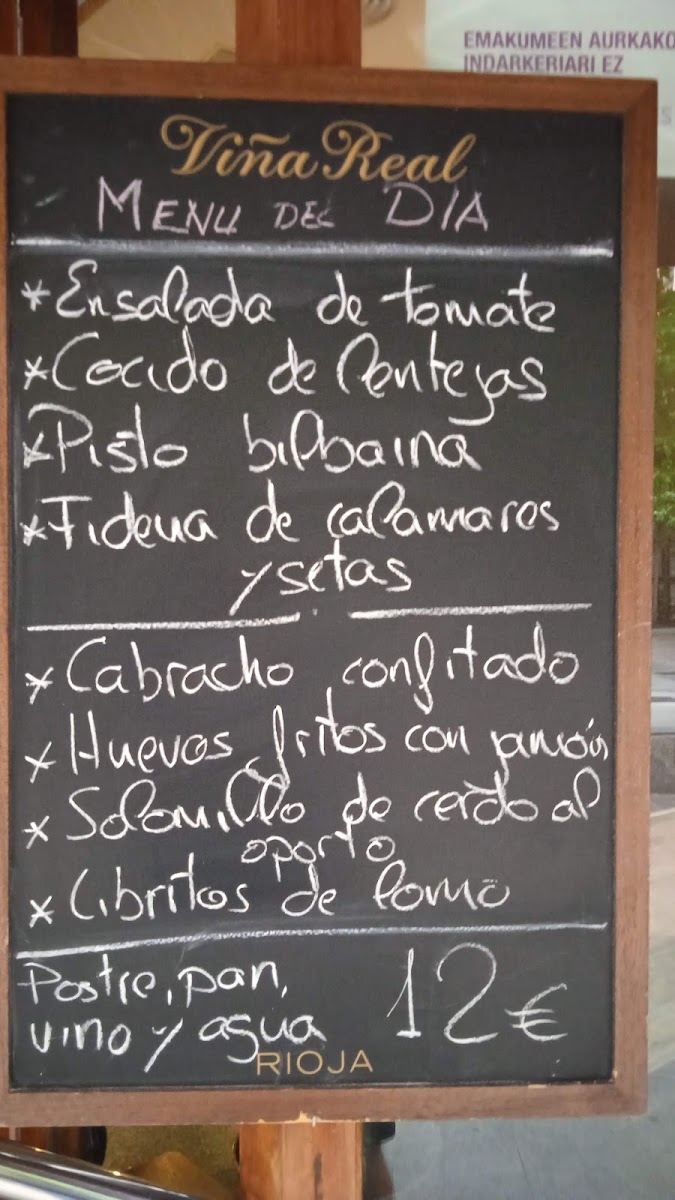 EMAKUMEEN AURKAKO
INDARKERIARI EZ
Viña Real
MENU DEL DIA
*Ensalada de tomate
*Cocido de lentejas
*Pisto bilbaina
*Fideua de calamares
y setas
*Cabracho confitado
*Huevos fritos con jamón
*Solomillo de cerdo al
oporto
*Libritos de lomo
Postre, pan,
vino y agua 12€
RIOJA